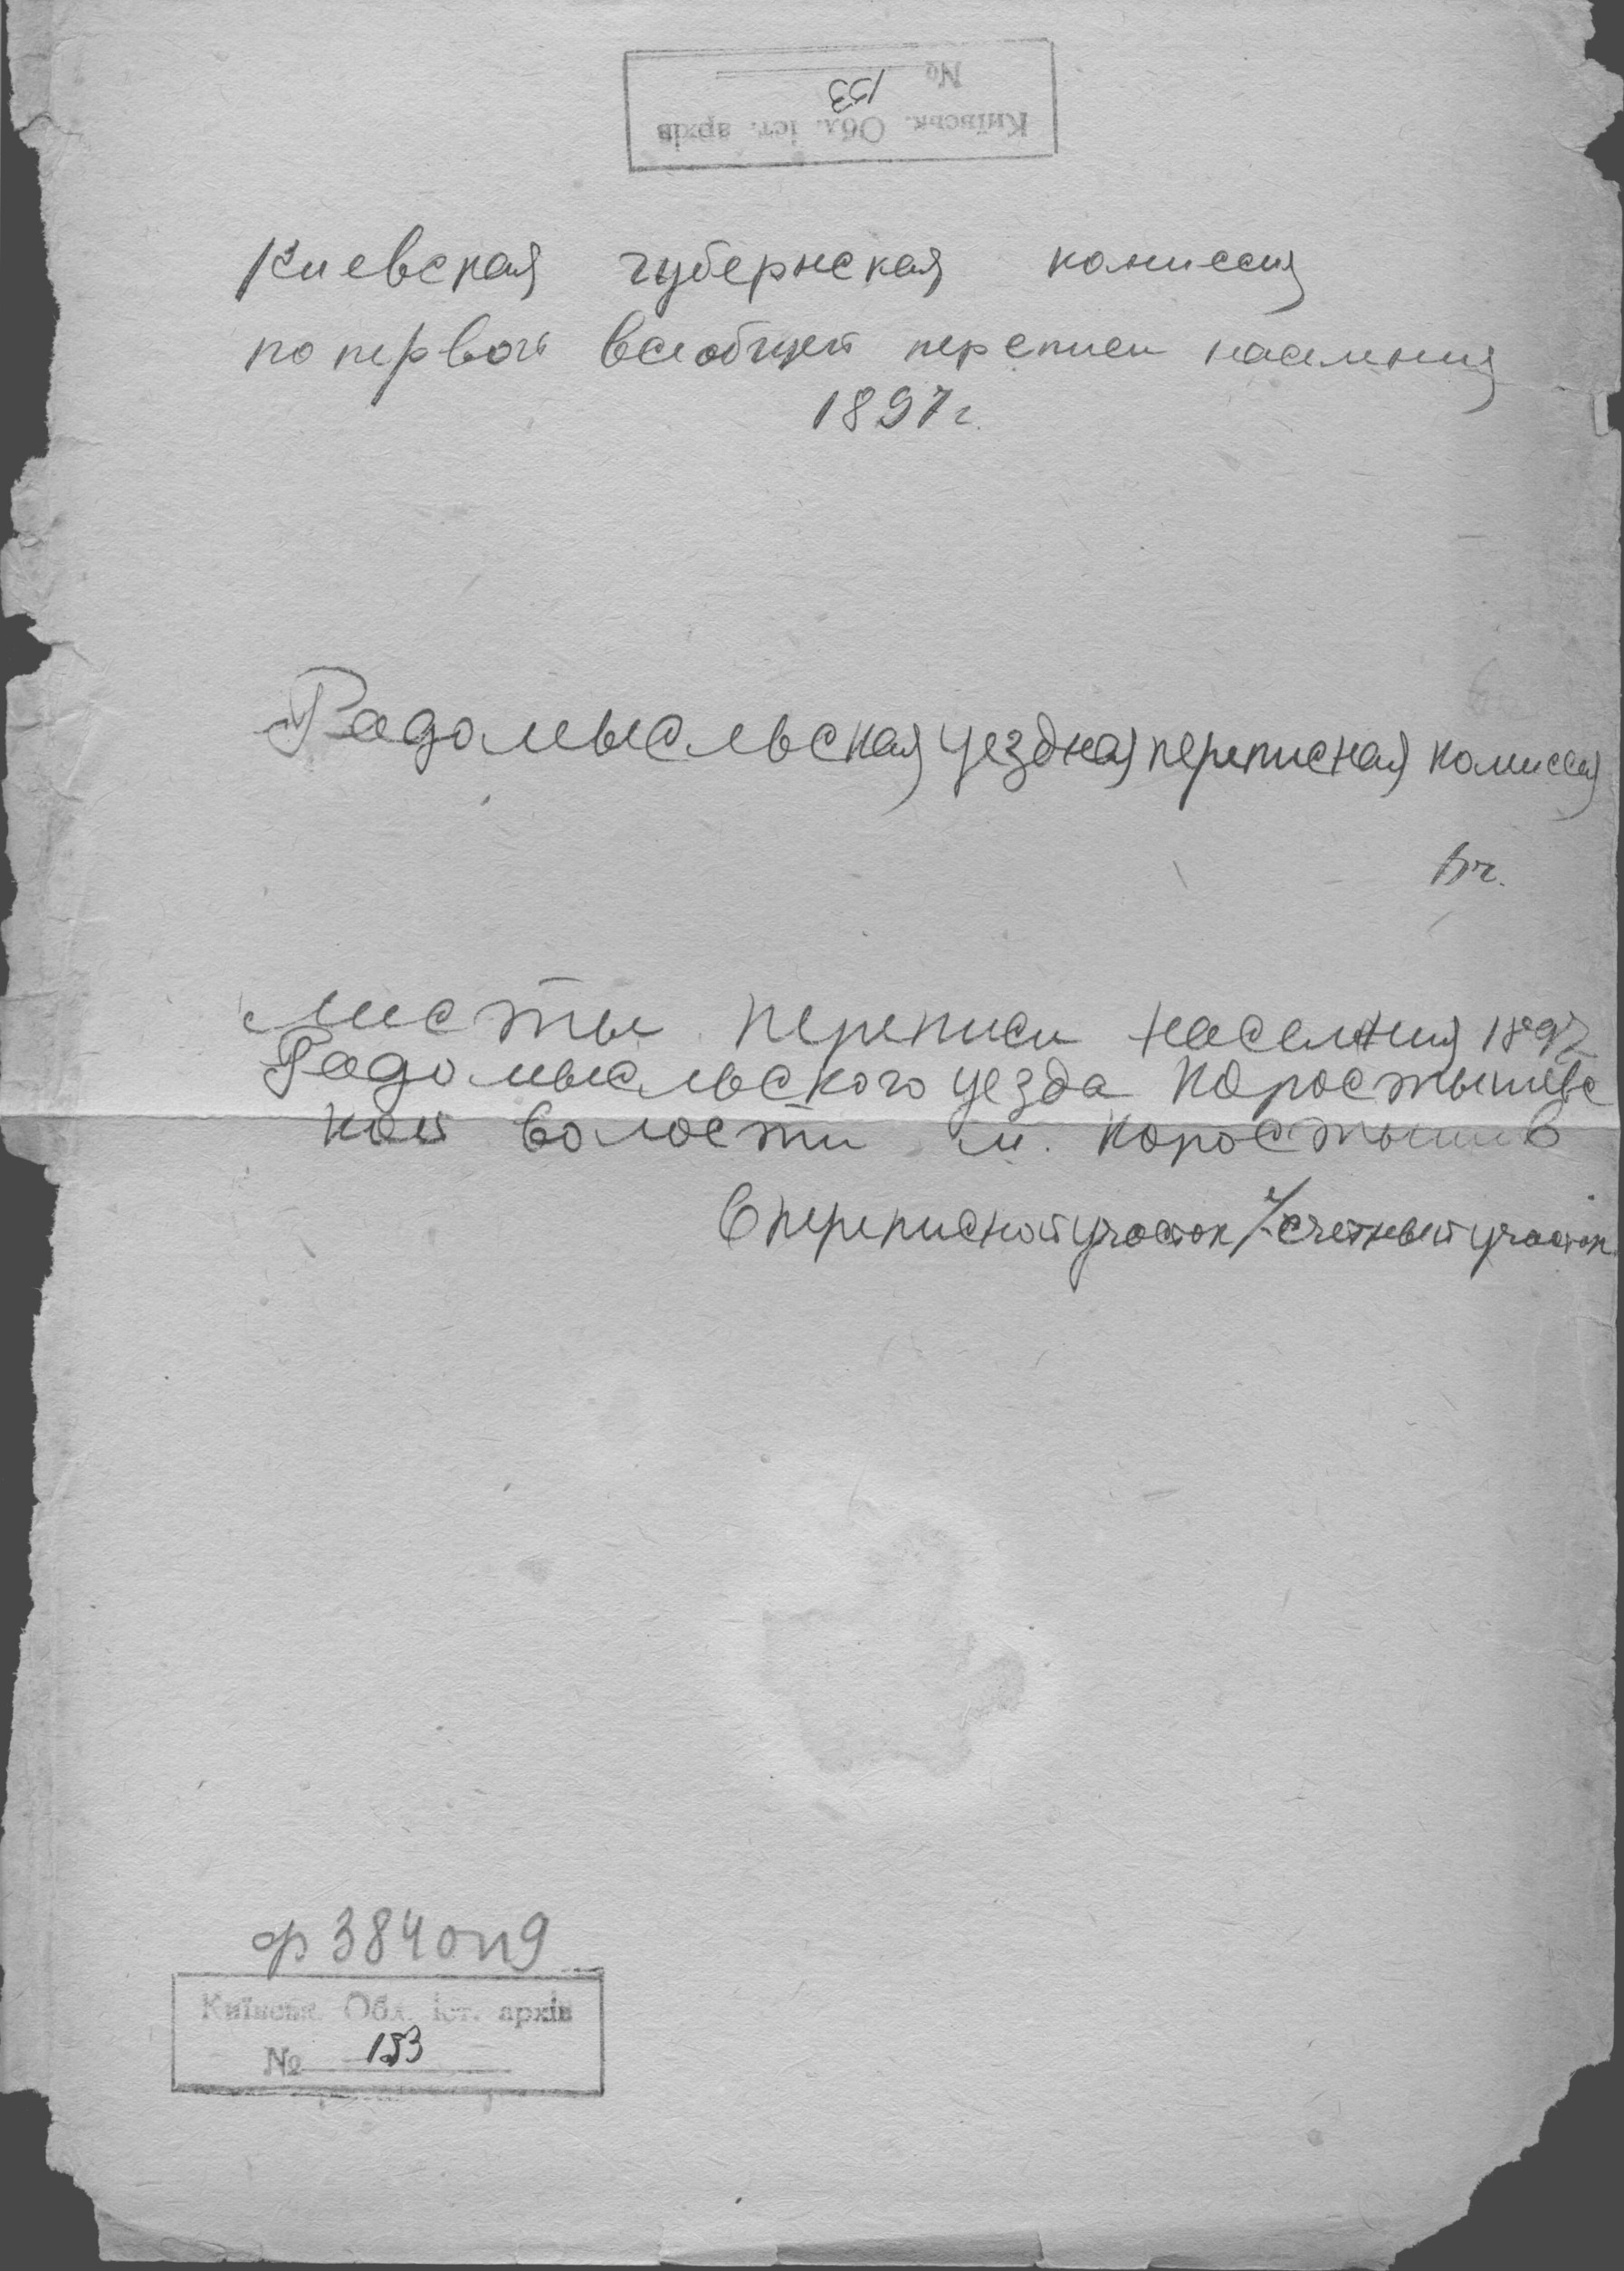 Київськ. Обл. іст. архів
№ 153
Киевская губернская комиссия
по первой всеобщей переписи населения
1897 г.
Радомысльская уездная переписная комиссия
Листы переписи населения 1897
Радомысльского уезда Коростышевс
кой волости м. Коростышев
6 переписной участок / счетный участок
ф 384 оп 9
Київськ. Обл. іст. архів
№ 153